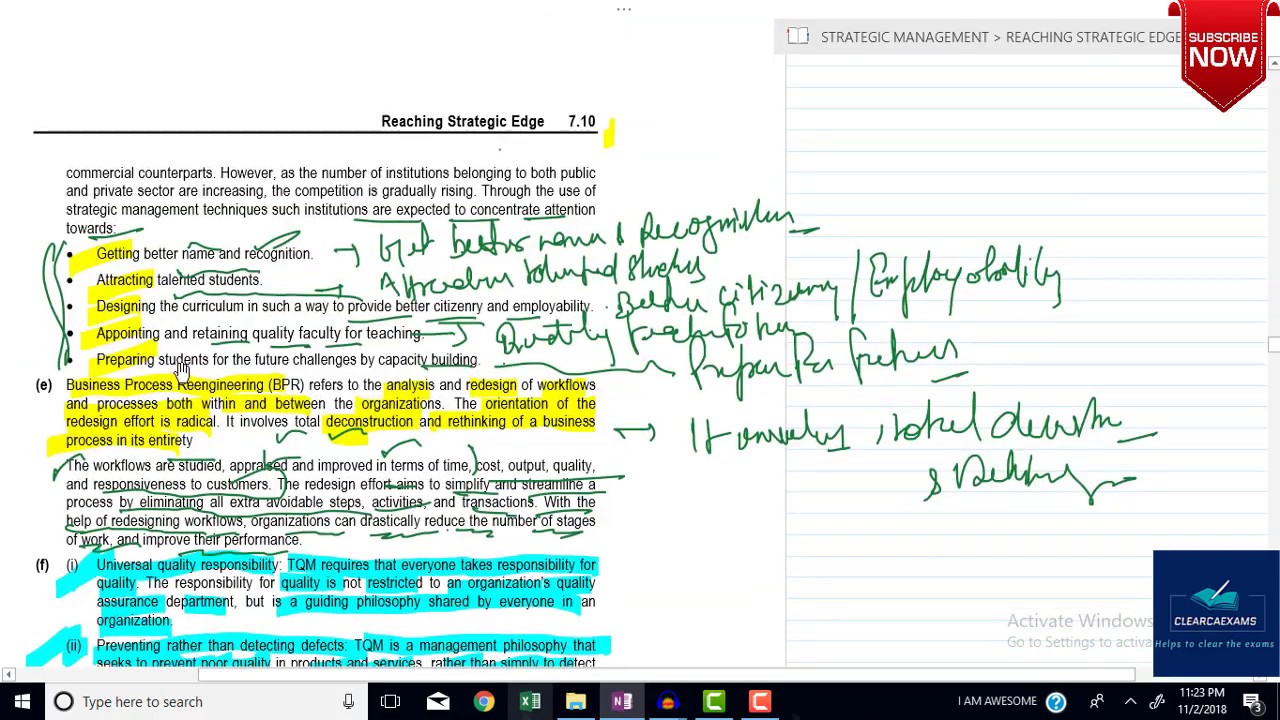 STRATEGIC MANAGEMENT > REACHING STRATEGIC EDGE
SUBSCRIBE
NOW
Reaching Strategic Edge 7.10
commercial counterparts. However, as the number of institutions belonging to both public
and private sector are increasing, the competition is gradually rising. Through the use of
strategic management techniques such institutions are expected to concentrate attention
towards:
• Getting better name and recognition.
Get better name & Recognition
• Attracting talented students.
talented students
• Designing the curriculum in such a way to provide better citizenry and employability.
Better citizenry / Employability
• Appointing and retaining quality faculty for teaching.
Quality
• Preparing students for the future challenges by capacity building.
Prepare for future
(e) Business Process Reengineering (BPR) refers to the analysis and redesign of workflows
and processes both within and between the organizations. The orientation of the
redesign effort is radical. It involves total deconstruction and rethinking of a business
process in its entirety
It involves, total
&
The workflows are studied, appraised and improved in terms of time, cost, output, quality,
and responsiveness to customers. The redesign effort aims to simplify and streamline a
process by eliminating all extra avoidable steps, activities, and transactions. With the
help of redesigning workflows, organizations can drastically reduce the number of stages
of work, and improve their performance.
(f) (i) Universal quality responsibility: TQM requires that everyone takes responsibility for
quality. The responsibility for quality is not restricted to an organization's quality
assurance department, but is a guiding philosophy shared by everyone in an
organization.
(ii) Preventing rather than detecting defects: TQM is a management philosophy that
seeks to prevent poor quality in products and services, rather than simply to detect
Activate Windows
Go to Settings to activa
CLEARCAEXAMS
Helps to clear the exams
Type here to search
I AM AWESOME
11:23 PM
11/2/2018
3